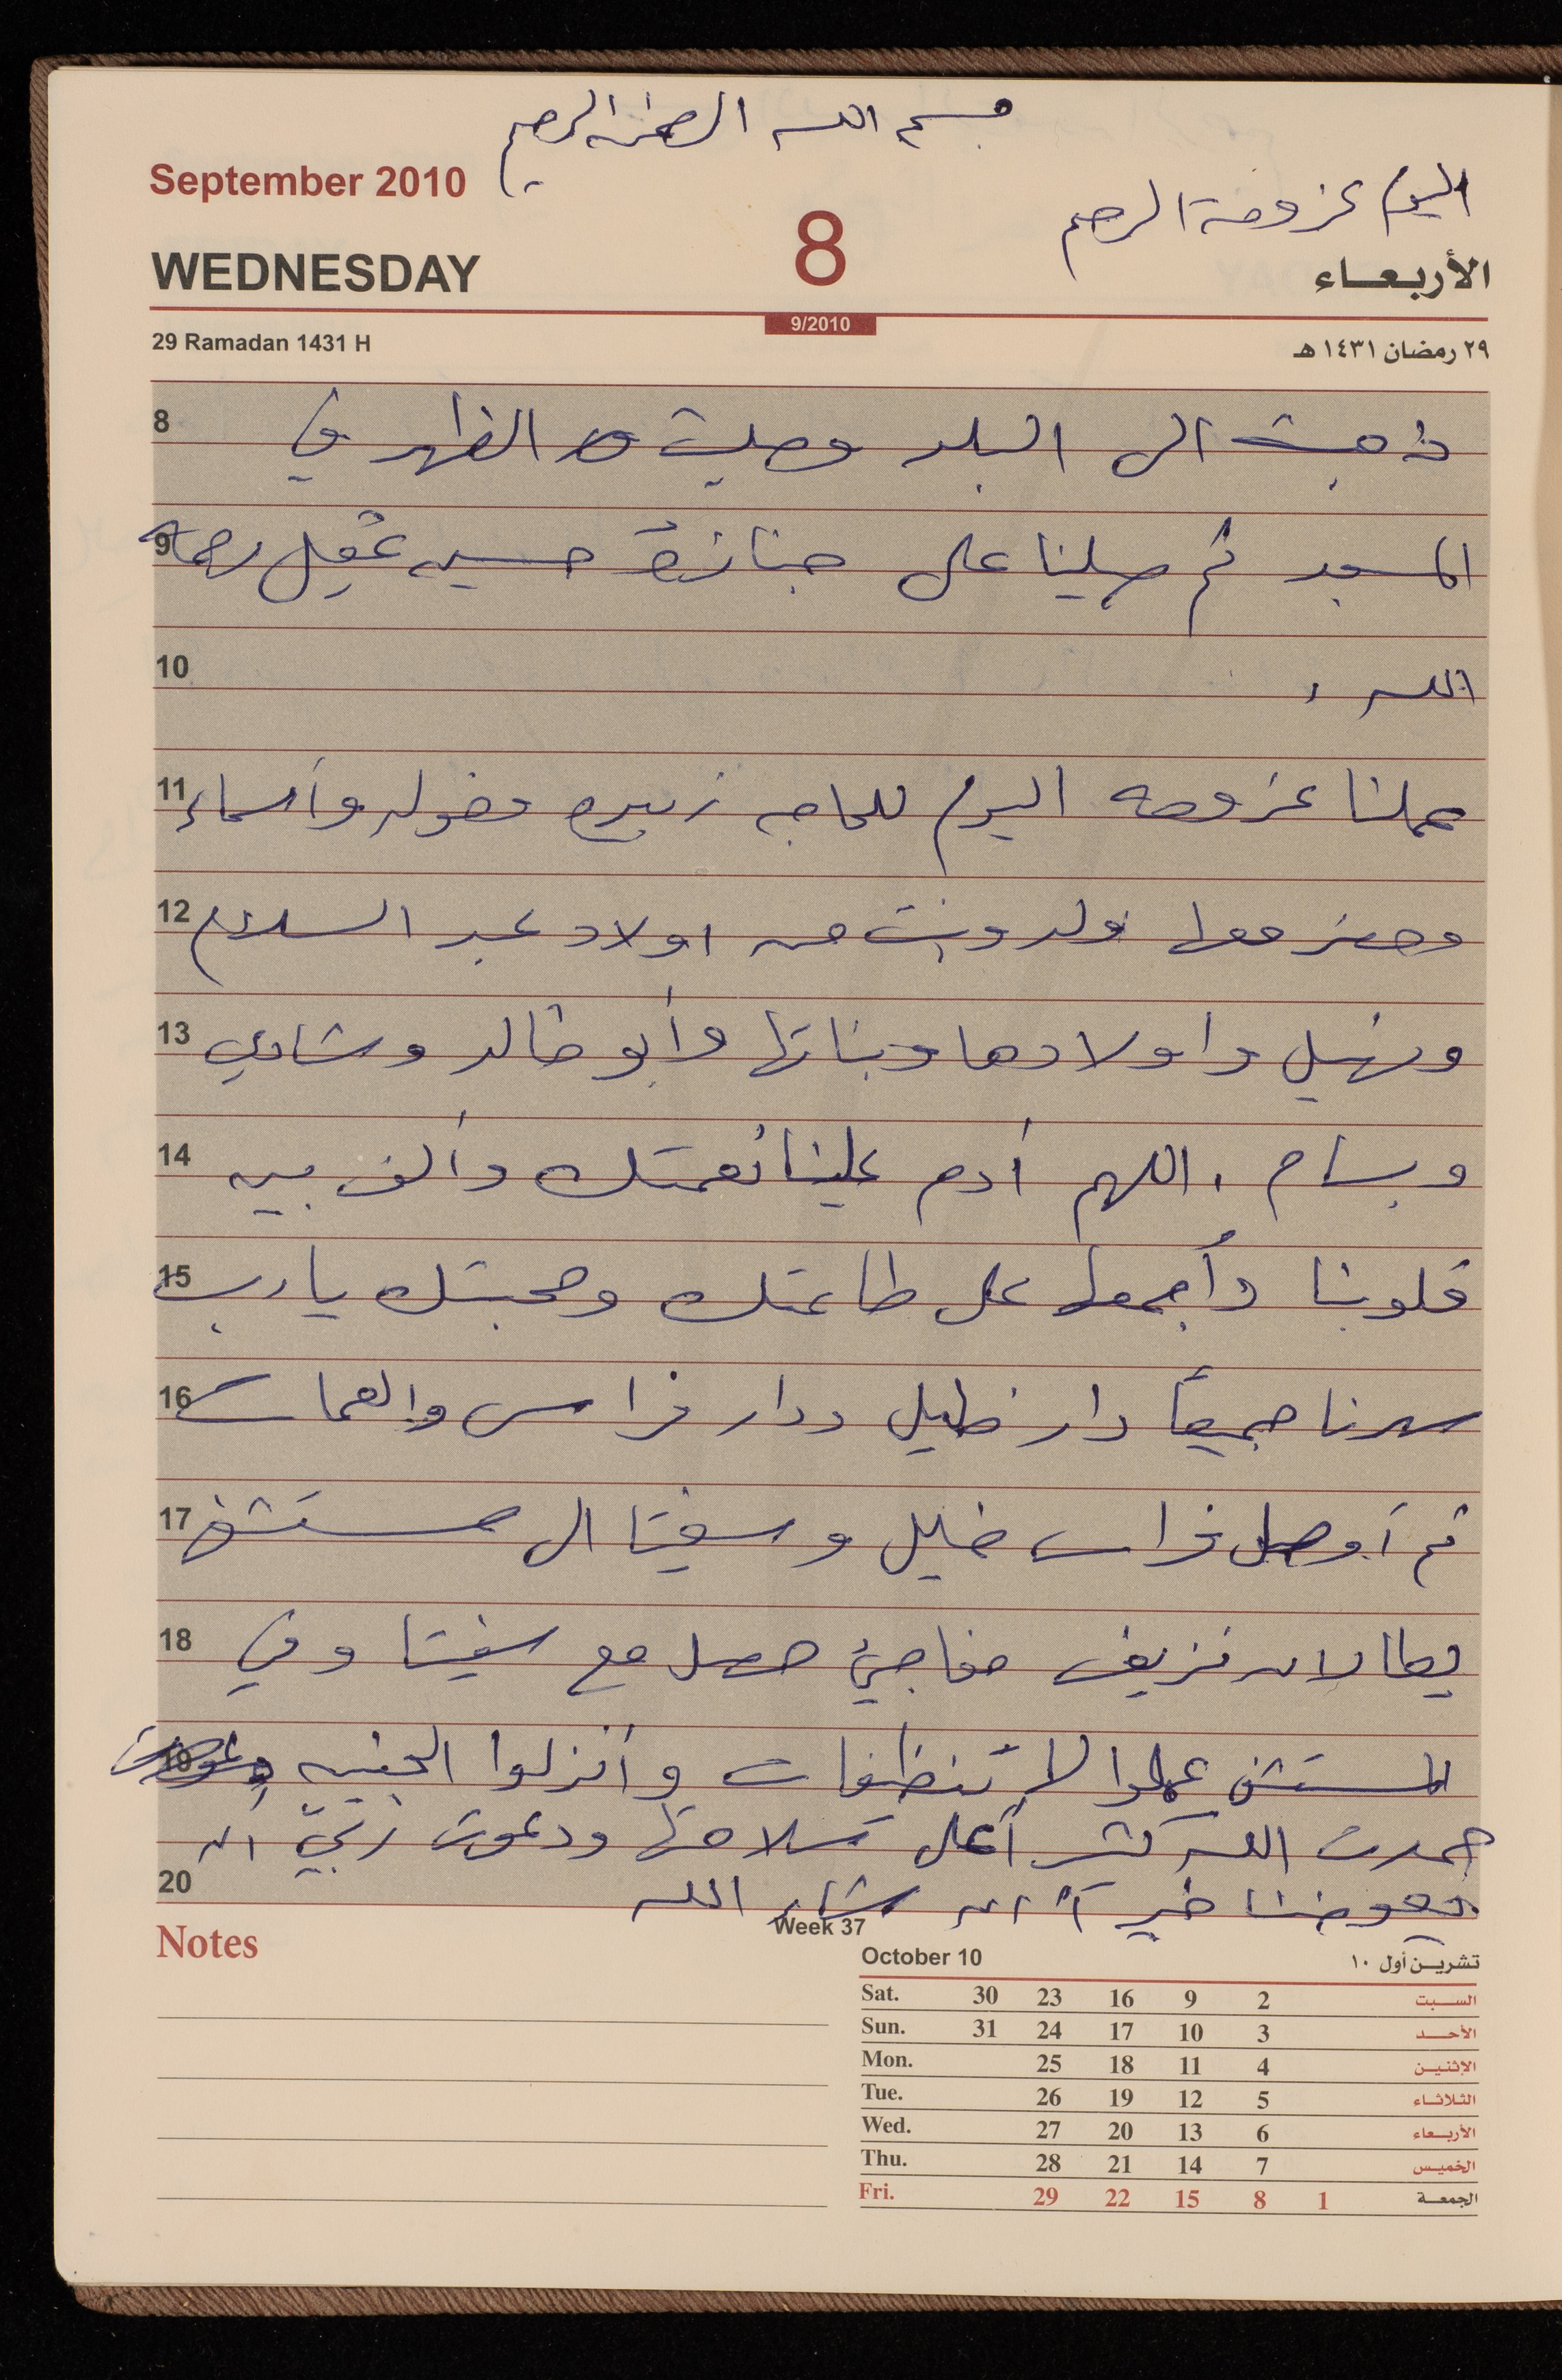 بسم الله الرحمن الرحيم
اليوم عزومة الرحم
September 2010
8
WEDNESDAY
الأربعاء
9/2010
29 Ramadan 1431 H
٢٩ رمضان ١٤٣١ هـ
8 ذهبت الى البلد وصليت الظهر في
9 المسجد ثم صلينا على جنازة حسين عقل رحمه
10 الله .
11 عملنا عزومه اليوم للحاجه زبيده وأسماء
12 وحضر معها ولد وبنت من اولاد عبد السلام
13 واولادها وبناتها وأبو خالد وشادي
14 وبسام . اللهم أدم علينا نعمتك وألف بين
15 قلوبنا وأجمعها على طاعتك ومحبتك يا رب
16 سهرنا جميعاً دار خليل ودار فراس والعمات
17 ثم أوصل فراس خليل وسفيتا الى مستشفى
18 يطا لان نزيف مفاجئ حصل مع سفيتا وفي
19 المستشفى عملوا لا تنظفات وأنزلوا الجنين
حمدت الله كثيراً على سلامتها ودعوت ربي ان
20 يعوضنا خيراً ان شاء الله
Notes
Week 37
October 10
تشرين أول ١٠
Sat. 30 23 16 9 2 السبت
Sun. 31 24 17 10 3 الأحد
Mon. 25 18 11 4 الإثنين
Tue. 26 19 12 5 الثلاثاء
Wed. 27 20 13 6 الأربعاء
Thu. 28 21 14 7 الخميس
Fri. 29 22 15 8 1 الجمعة